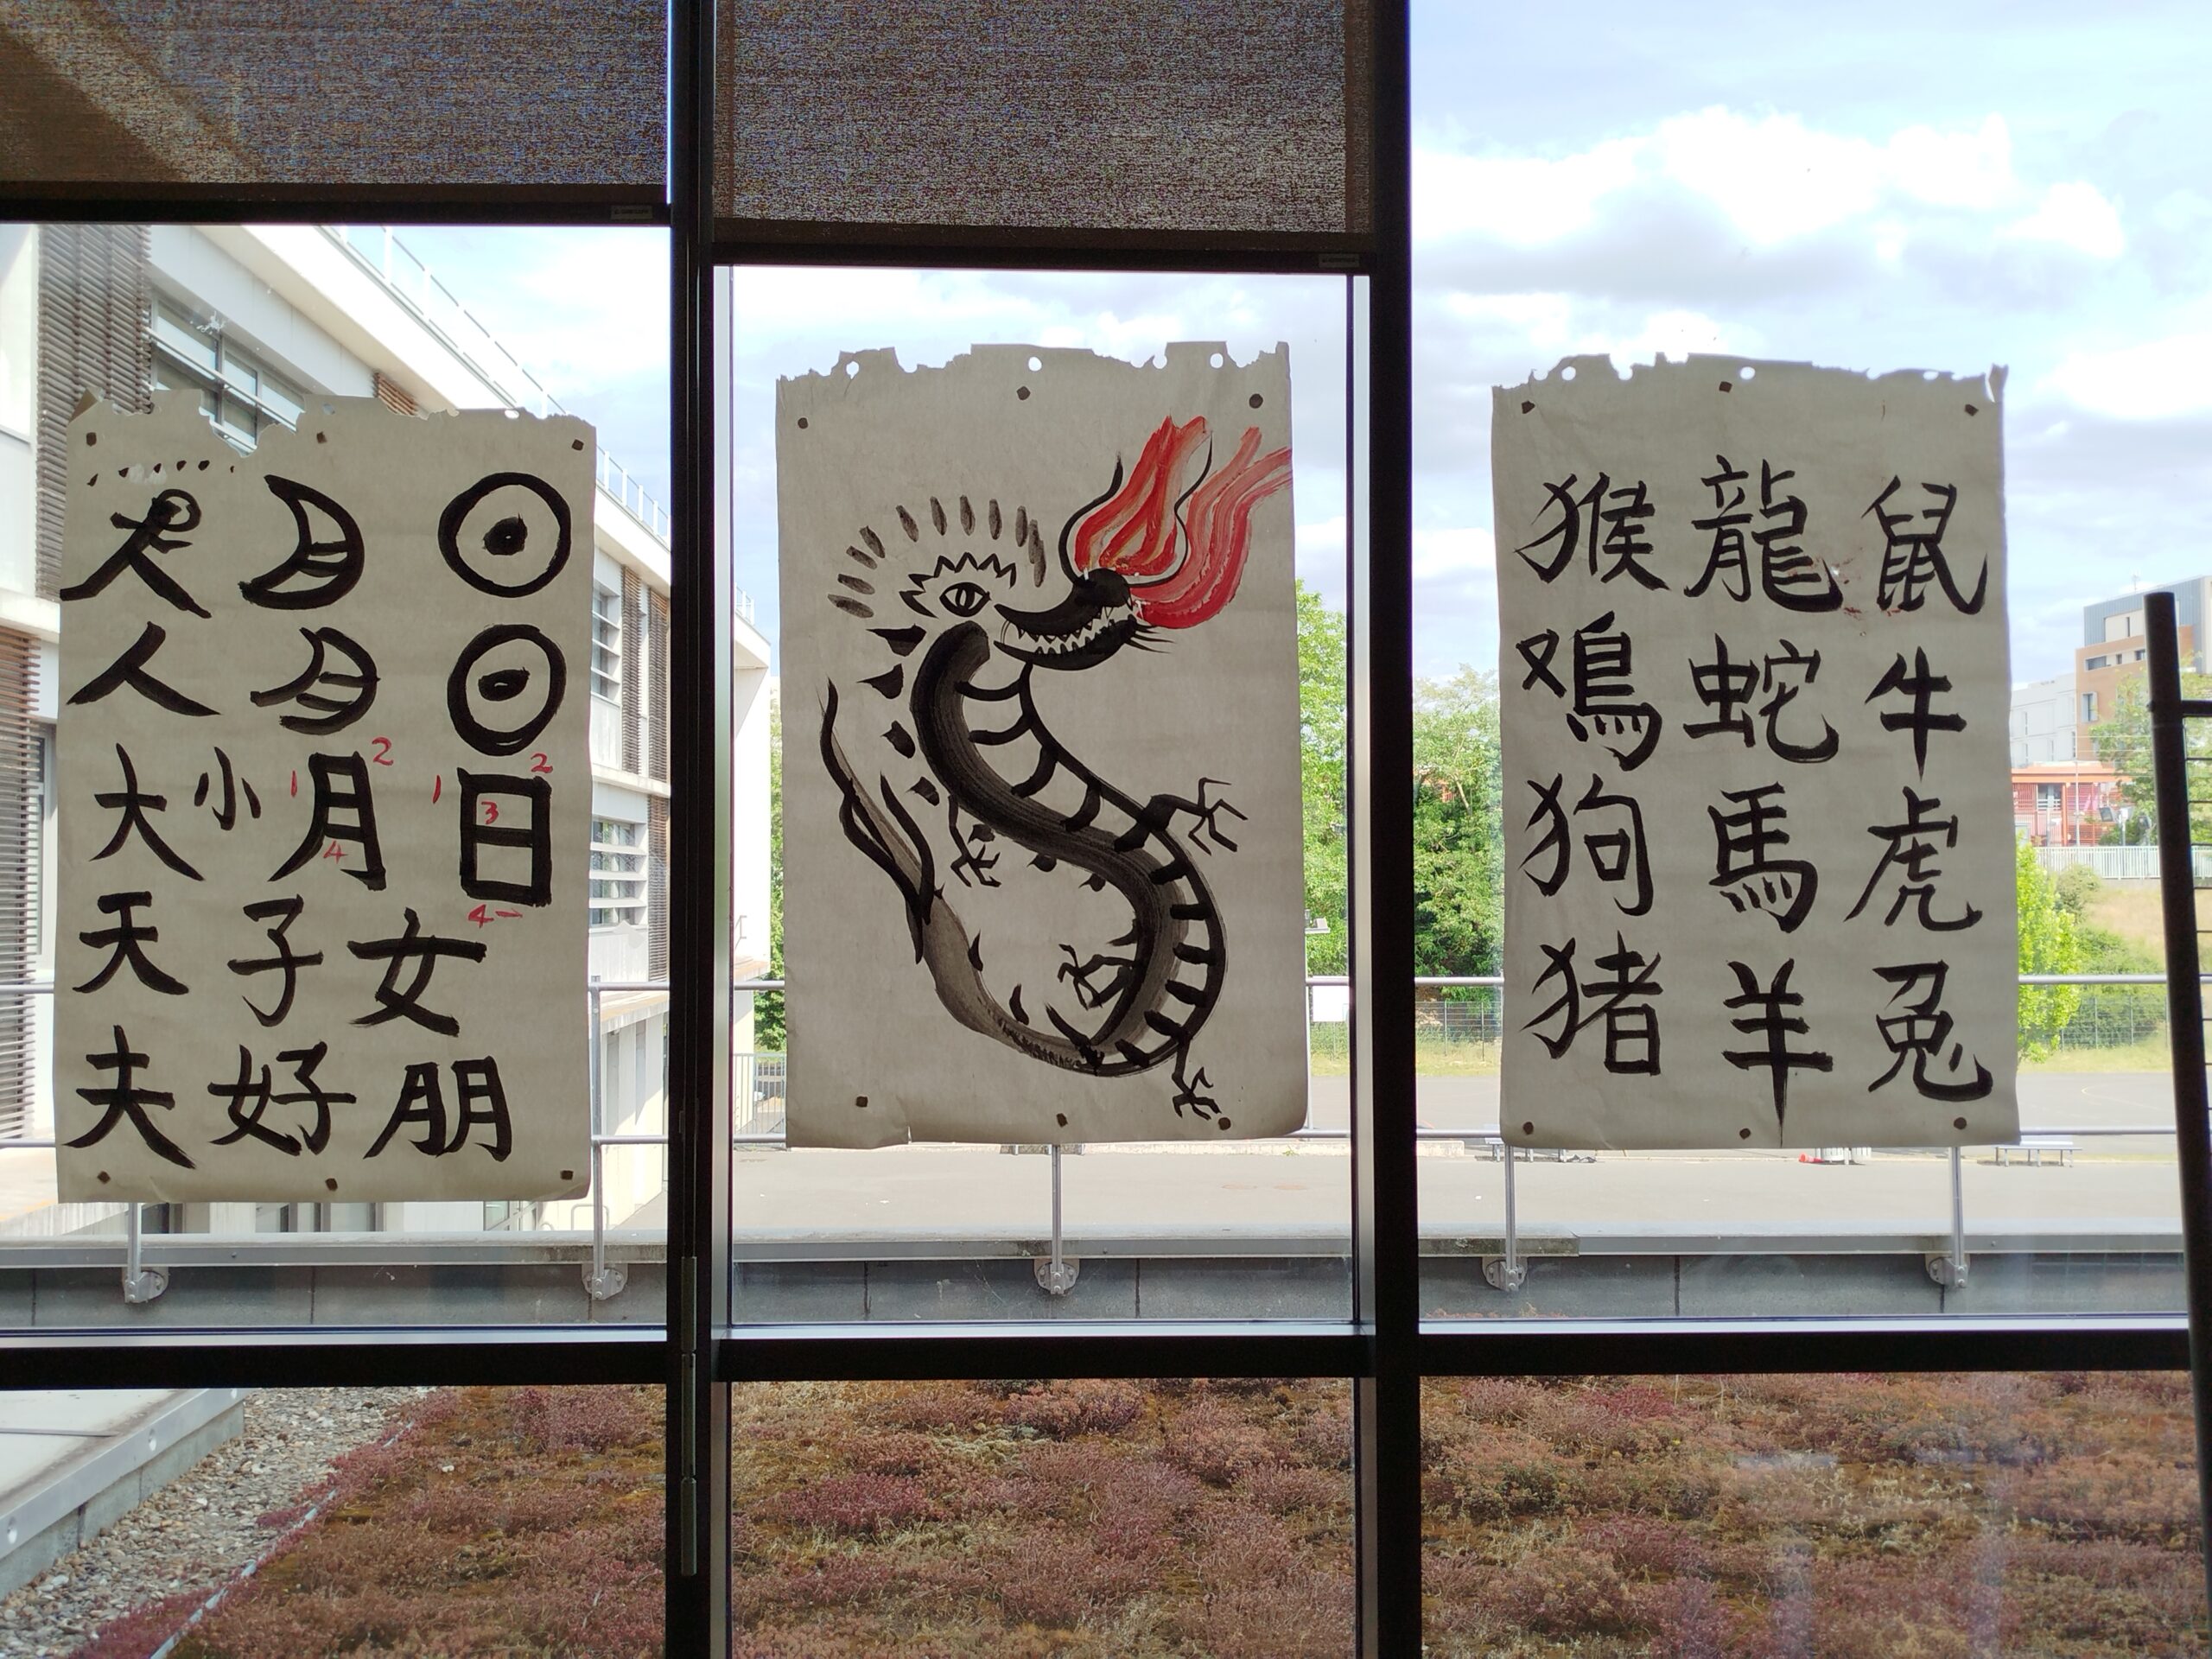 日女朋
1 2 3 4
月子好
1 2 4
小
人大天夫
鼠牛虎兔
龍蛇馬羊
猴鳮狗猪